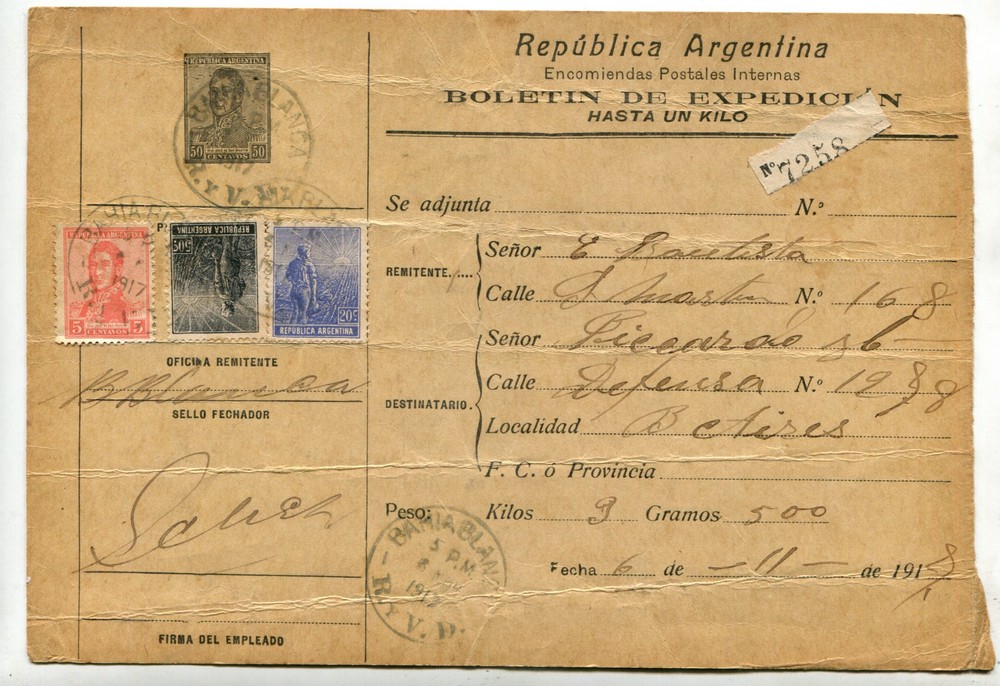 República Argentina
Encomiendas Postales Internas
BOLETIN DE EXPEDICIÓN
HASTA UN KILO
Nº 7258
Se adjunta N.º
REMITENTE.....
Señor E Bautista
Calle S Martin N.º 168
DESTINATARIO.
Señor Piccardo
Calle Defensa N.º 1278
Localidad B Aires
F. C. ó Provincia
Peso: Kilos 3 Gramos 500
Fecha 6 de - 11 - de 191
REPUBLICA ARGENTINA
50 CENTAVOS 50
BAHIA BLANCA
1917
R. y V. D.
BAHIA BLANCA
REPUBLICA ARGENTINA
5 CENTAVOS 5
1917
50c
REPUBLICA ARGENTINA
20c
REPUBLICA ARGENTINA
OFICINA REMITENTE
B Blanca
SELLO FECHADOR
FIRMA DEL EMPLEADO
BAHIA BLANCA
5 P.M.
1917
R. y V. D.